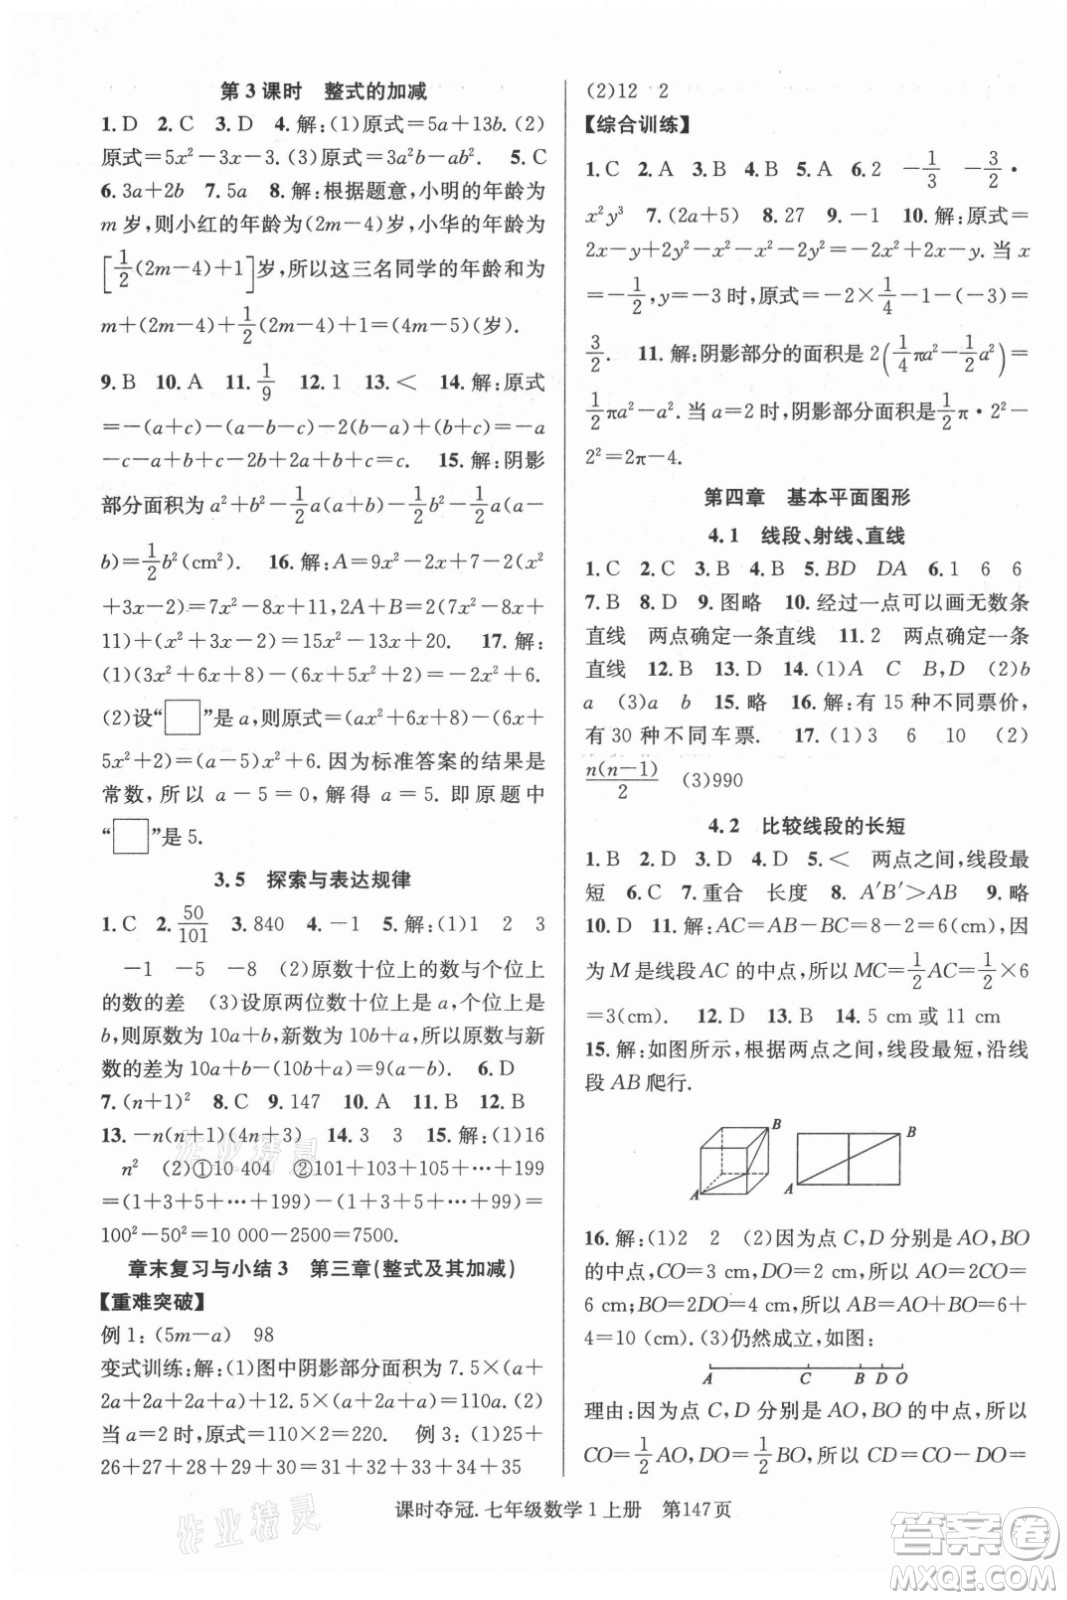 第3课时 整式的加减
1.D 2.C 3.D 4.解:(1)原式=5a+13b.(2)
原式=5x²-3x-3.(3)原式=3a²b-ab². 5.C
6.3a+2b 7.5a 8.解:根据题意,小明的年龄为
m岁,则小红的年龄为(2m-4)岁,小华的年龄为
[1/2(2m-4)+1]岁,所以这三名同学的年龄和为
m+(2m-4)+1/2(2m-4)+1=(4m-5)(岁).
9.B 10.A 11.1/9 12.1 13.< 14.解:原式
=-(a+c)-(a-b-c)-2(b-a)+(b+c)=-a
-c-a+b+c-2b+2a+b+c=c. 15.解:阴影
部分面积为a²+b²-1/2a(a+b)-1/2b²-1/2a(a-
b)=1/2b²(cm²). 16.解:A=9x²-2x+7-2(x²
+3x-2)=7x²-8x+11,2A+B=2(7x²-8x+
11)+(x²+3x-2)=15x²-13x+20. 17.解:
(1)(3x²+6x+8)-(6x+5x²+2)=-2x²+6.
(2)设“□”是a,则原式=(ax²+6x+8)-(6x+
5x²+2)=(a-5)x²+6. 因为标准答案的结果是
常数,所以a-5=0,解得a=5.即原题中
“□”是5.
3.5 探索与表达规律
1.C 2.50/101 3.840 4.-1 5.解:(1)1 2 3
-1 -5 -8 (2)原数十位上的数与个位上
的数的差 (3)设原两位数十位上是a,个位上是
b,则原数为10a+b,新数为10b+a,所以原数与新
数的差为10a+b-(10b+a)=9(a-b). 6.D
7.(n+1)² 8.C 9.147 10.A 11.D 12.B
13.-n(n+1)(4n+3) 14.3 3 15.解:(1)16
n² (2)①10 404 ②101+103+105+⋯+199
=(1+3+5+⋯+199)-(1+3+5+⋯+99)=
100²-50²=10 000-2500=7500.
章末复习与小结3 第三章(整式及其加减)
【重难突破】
例1:(5m-a) 98
变式训练:解:(1)图中阴影部分面积为7.5×(a+
2a+2a+2a+a)+12.5×(2a+2a)=110a.(2)
当a=2时,原式=110×2=220. 例3:(1)25+
26+27+28+29+30+31+32+33+34+35
(2)12 2
【综合训练】
1.C 2.A 3.B 4.B 5.A 6.2 -1/3 -3/2·
x²y³ 7.(2a+5) 8.27 9.-1 10.解:原式=
2x-y+2y²-x²-x²-2y²=-2x²+2x-y.当
x=-1/2,y=-3时,原式=-2×1/4-1-(-3)=
3/2. 11.解:阴影部分的面积是2(1/4πa²-1/2a²)=
1/2πa²-a².当a=2时,阴影部分面积是1/2π·2²-
2²=2π-4.
第四章 基本平面图形
4.1 线段、射线、直线
1.C 2.C 3.B 4.B 5.BD DA 6.1 6 6
7.B 8.D 9.图略 10.经过一点可以画无数条
直线 两点确定一条直线 11.2 两点确定一条
直线 12.B 13.D 14.(1)A C B,D (2)b
a (3)a b 15.略 16.解:有15种不同票价,
有30种不同车票. 17.(1)3 6 10 (2)
n(n-1)/2 (3)990
4.2 比较线段的长短
1.B 2.D 3.D 4.D 5.< 两点之间,线段最
短 6.C 7.重合 长度 8.A′B′>AB 9.略
10.D 11.解:AC=AB-BC=8-2=6(cm),因
为M是线段AC的中点,所以MC=1/2AC=1/2×6
=3(cm). 12.D 13.B 14.5 cm或11 cm
15.解:如图所示,根据两点之间,线段最短,沿线
段AB爬行.
B
A
B
A
16.解:(1)2 2 (2)因为点C,D分别是AO,BO
的中点,CO=3 cm,DO=2 cm,所以AO=2CO=
6 cm;BO=2DO=4 cm,所以AB=AO+BO=6+
4=10(cm).(3)仍然成立,如图:
A C B D O
理由:因为点C,D分别是AO,BO的中点,所以
CO=1/2AO,DO=1/2BO,所以CD=CO-DO=
课时夺冠.七年级数学1上册 第147页
作业精灵
作业精灵
答案圈
MXEQ.COM